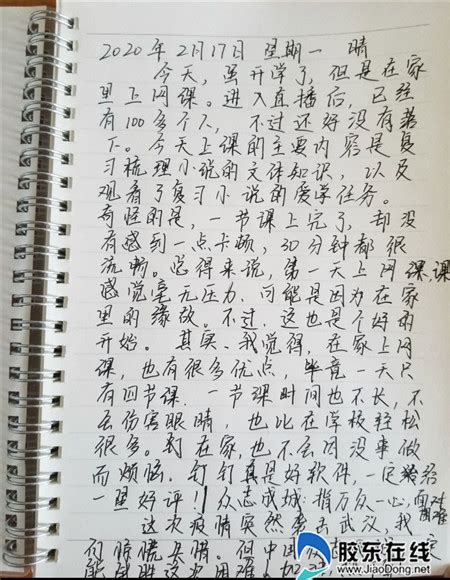 2020年2月17日 星期一 晴
今天，虽开学了，但是在家
里上网课。进入直播后，已经
有100多个人，不过还好没有落
下。今天上课的主要内容是复
习梳理小说的文体知识，以及
观看了复习小说的爱学任务。
奇怪的是，一节课上完了，却没
有感到一点卡顿，30分钟都很
流畅。总得来说，第一天上网课，课
感觉毫无压力，可能是因为在家
里的缘故。不过，这也是个好的
开始。其实，我觉得，在家上网
课，也有很多优点，毕竟一天只
有四节课，一节课时间也不长，不
会伤害眼睛，也比在学校轻松
很多。到在家，也不会因没事做
而烦恼。钉钉真是好软件，一定给
一星好评！众志成城：指万众一心，
这次疫情突然袭击武汉，我
们
胶东在线
www.JiaoDong.net